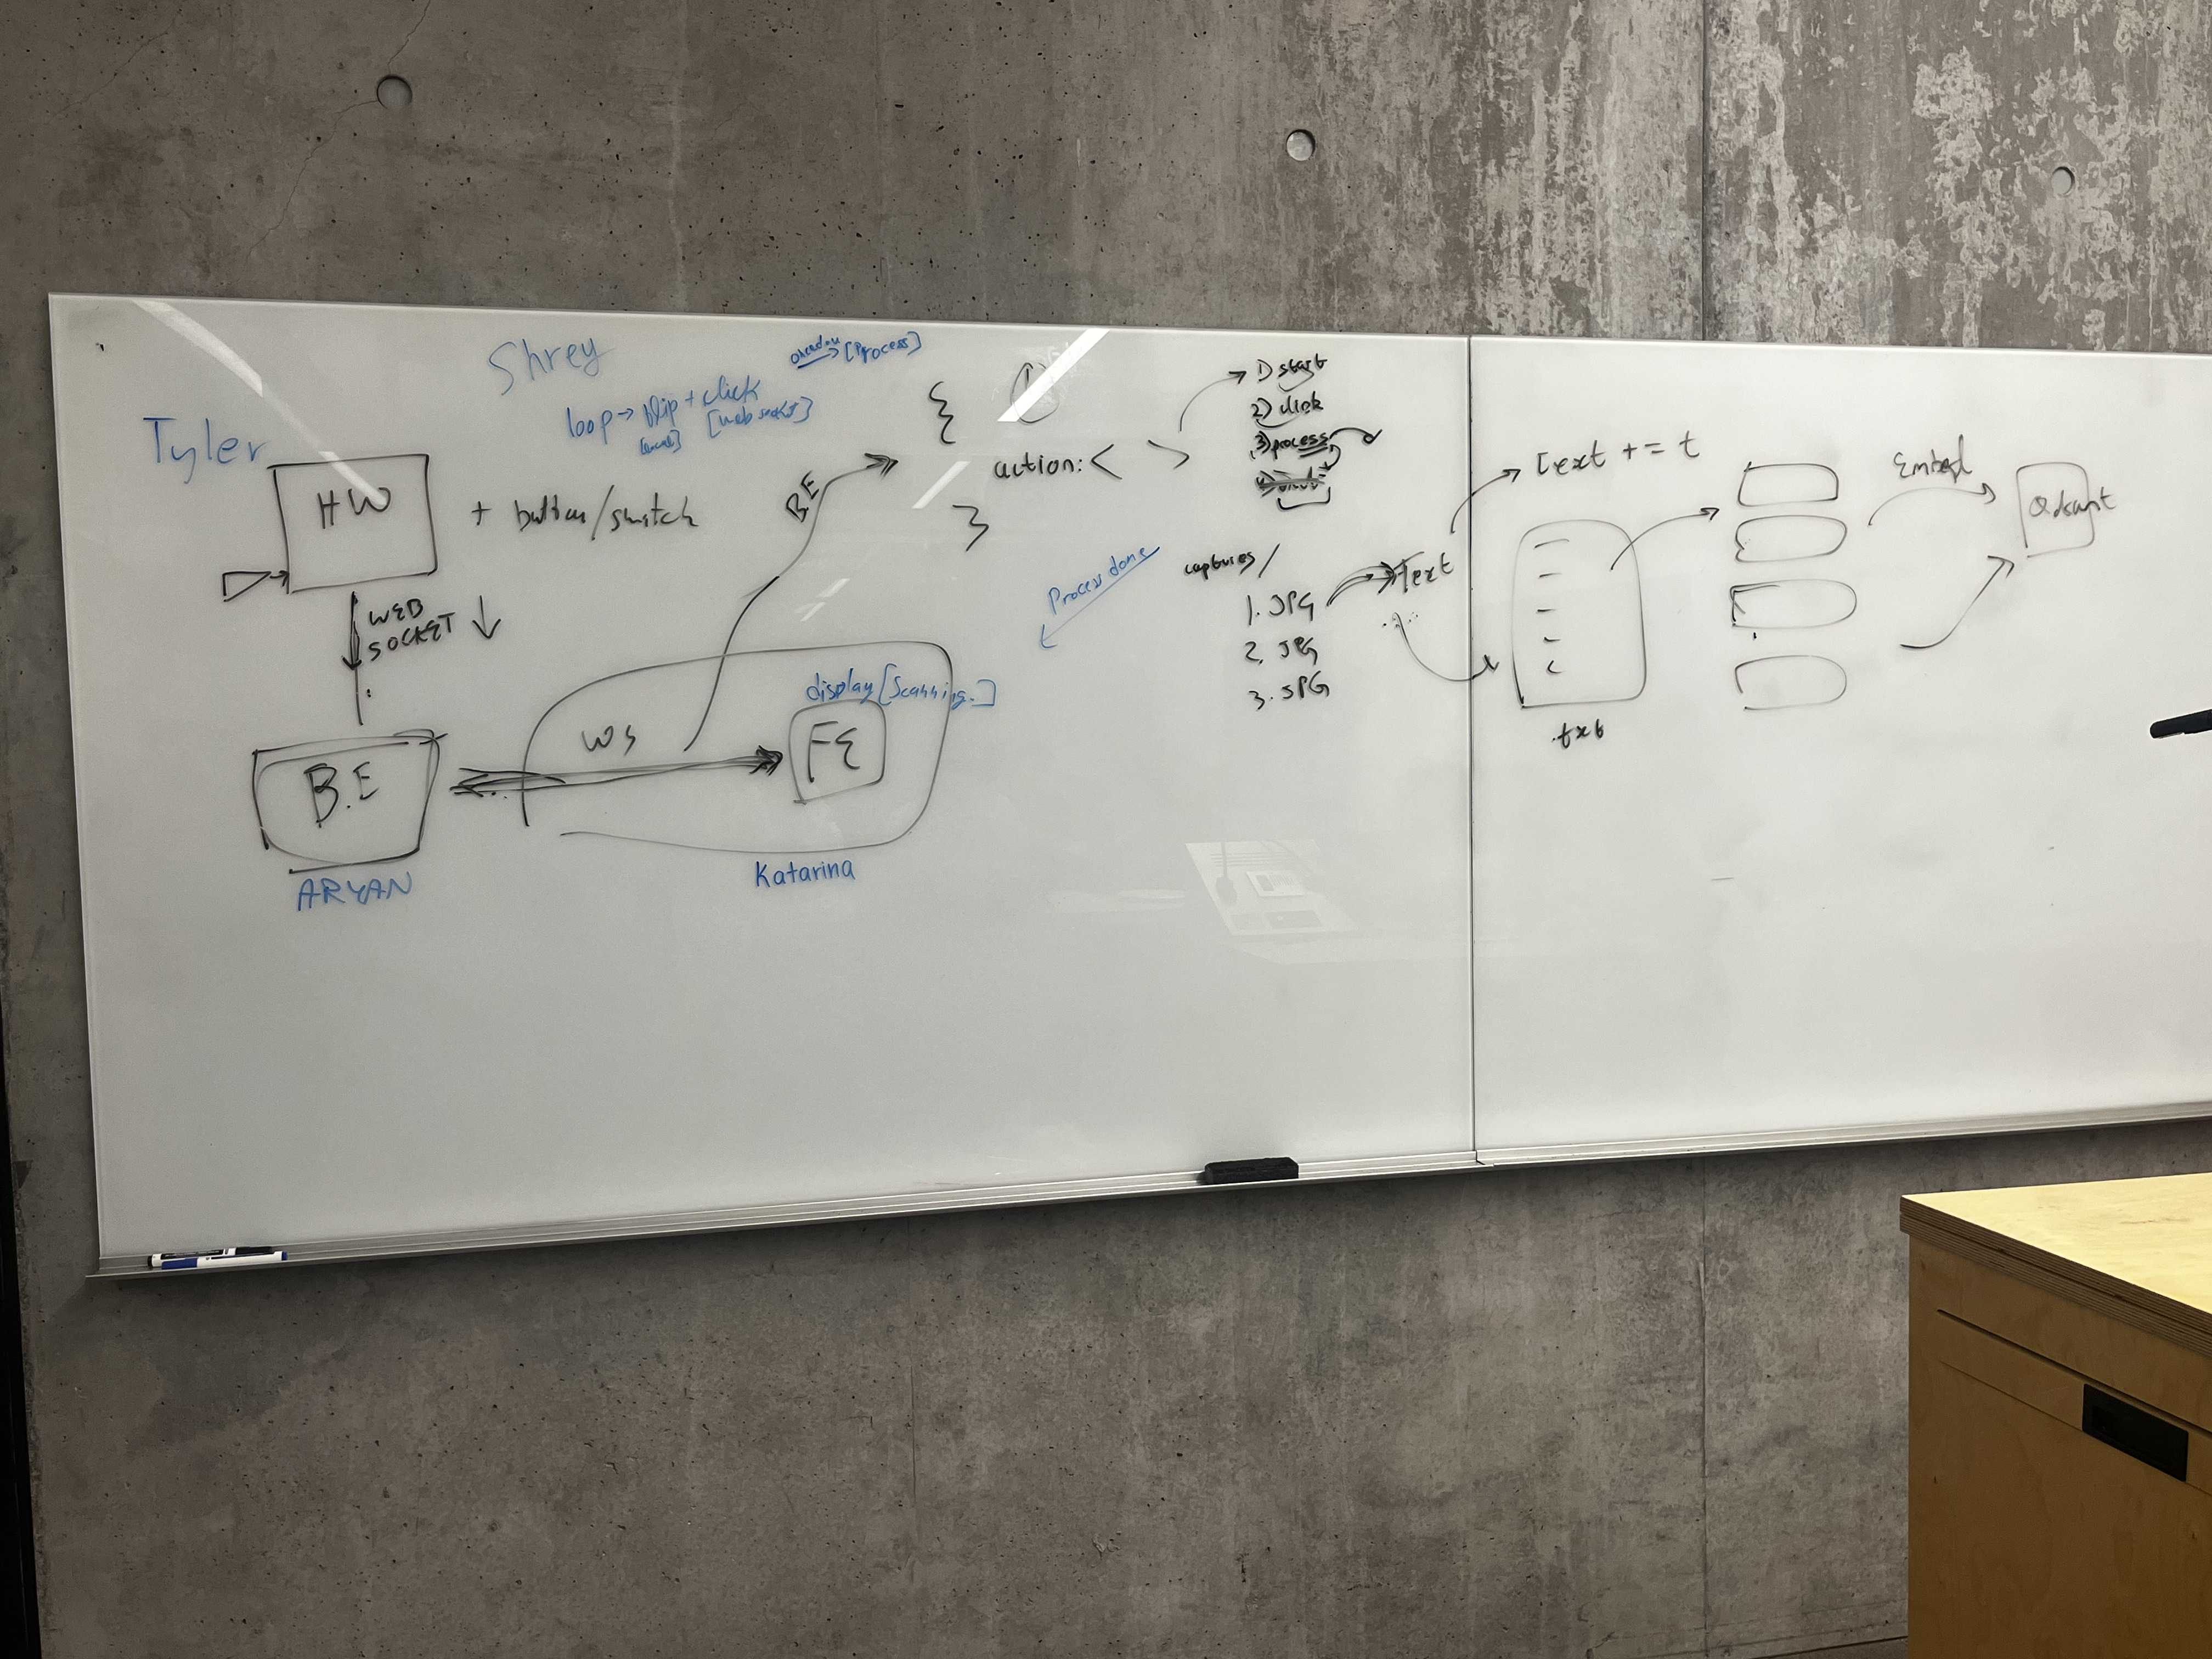 Shrey
[Process]
loop → flip + click
[web socket]
Tyler
HW
+ button/switch
WEB
SOCKET ↓
B.E
ARYAN
WS
FE
display [Scanning.]
Katarina
B.E
{
①
action: < >
}
1) start
2) click
3) process
Process done
captures/
1. JPG
2. JPG
3. JPG
Text
Text += t
.txt
Embed
Qdrant